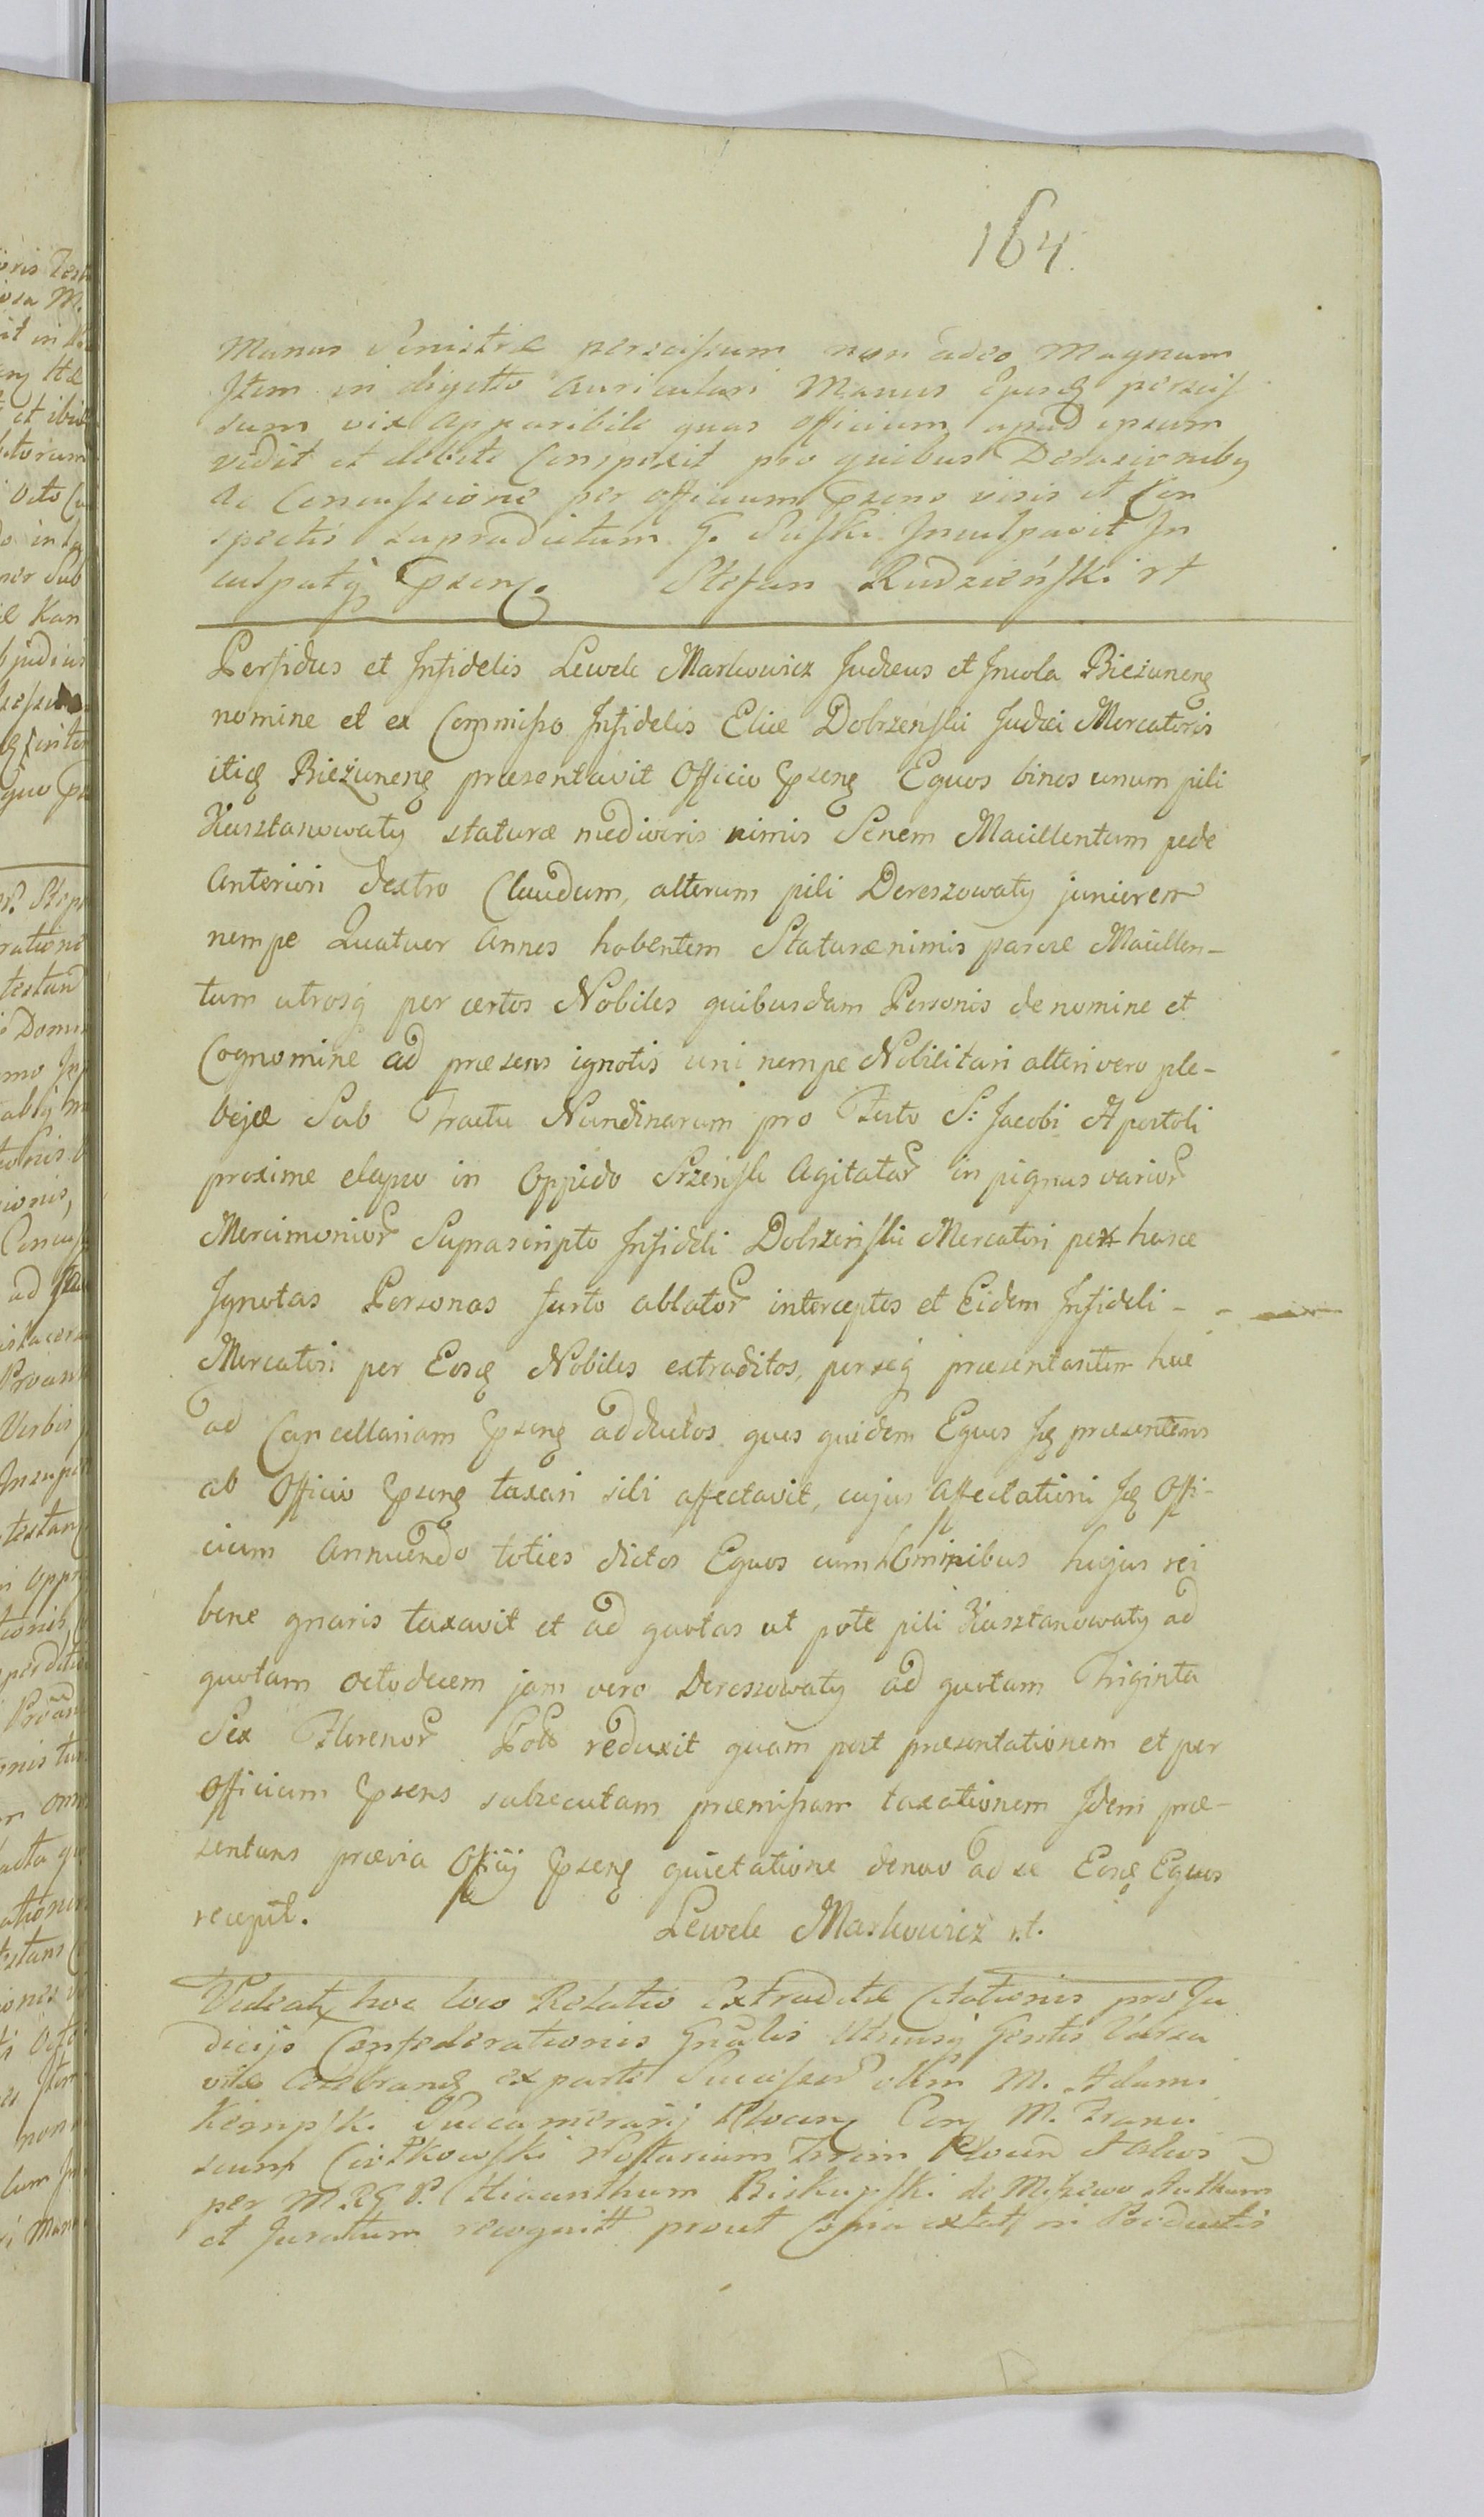 164.
Manus Sinistræ perscissum non adeo magnum
Item in digitto auriculari Manus Ejusq perscis
sum vix apparibile quas officium apud ipsum
vidit et debite Conspexit pro quibus Derasionibq
ac Concussione per officium Psens visis et Con
spectis supradictum G. Suski Inculpavit In
culpatq Psens. Stefan Rudzieński rt
Perfidus et Infidelis Lewek Markowicz Judæus et Incola Bieżuneng
nomine et ex Commisso Infidelis Eliæ Dobrzeński Judæi Mercatoris
itiq Bieżuneng præsentavit Officio Pseng Equos binos unum pili
Kasztanowaty staturæ mediocris nimis Senem Macillentum pede
Anteriori dextro Claudum, alterum pili Dereszowaty juniorem
nempe Quatuor Annos habentem Staturæ nimis parvæ Macillen-
tum utrosq per certos Nobiles quibusdam Personis de nomine et
Cognomine ad præsens ignotis uni nempe Nobilitari alteri vero ple-
bejæ Sub Tractu Nundinarum pro Festo S: Jacobi Apostoli
proxime elapso in Oppido Srzeńsk Agitatar in pignus varior
Mercimonior Suprascripto Infideli Dobrzeński Mercatori per hasce
Ignotas Personas furto ablator interceptos et Eidem Infideli -
Mercatori per Eosq Nobiles extraditos, per seq præsentantem huc
ad Cancellariam Pseng adductos quos quidem Equos Iq præsentans
ab Officio Pseng taxari sibi affectavit, cujus Affectationi Iq Offi-
cium Annuendo toties dictos Equos cum hominibus hujus rei
bene gnaris taxavit et ad quotas ut pote pili Kasztanowaty ad
quotam octodecem jam vero Dereszowaty ad quotam Triginta
Sex Florenor Poll reduxit quam post præsentationem et per
Officium Psens subsecutam præmissam taxationem Idem præ-
sentans prævia Officij Pseng quietatione denuo ad se Eosq Equos
recepit. Lewek Markowicz r.t.
Videatq hoc loco Relatio Extraditæ Citationis pro Ju
dicijs Confederationis Gnalis Utriusq Gentis Varsa
viæ Celebrang ex parte Successor olim M. Adami
Kempski Succamerarij Plocen Con M. Franci
scum Ciołkowski Notarium Trrim Plocen Alios
per M RG P. Hiacinthum Biskupski de Miszewo Authum
et Juratum recognitt prout Copia extat in Productis